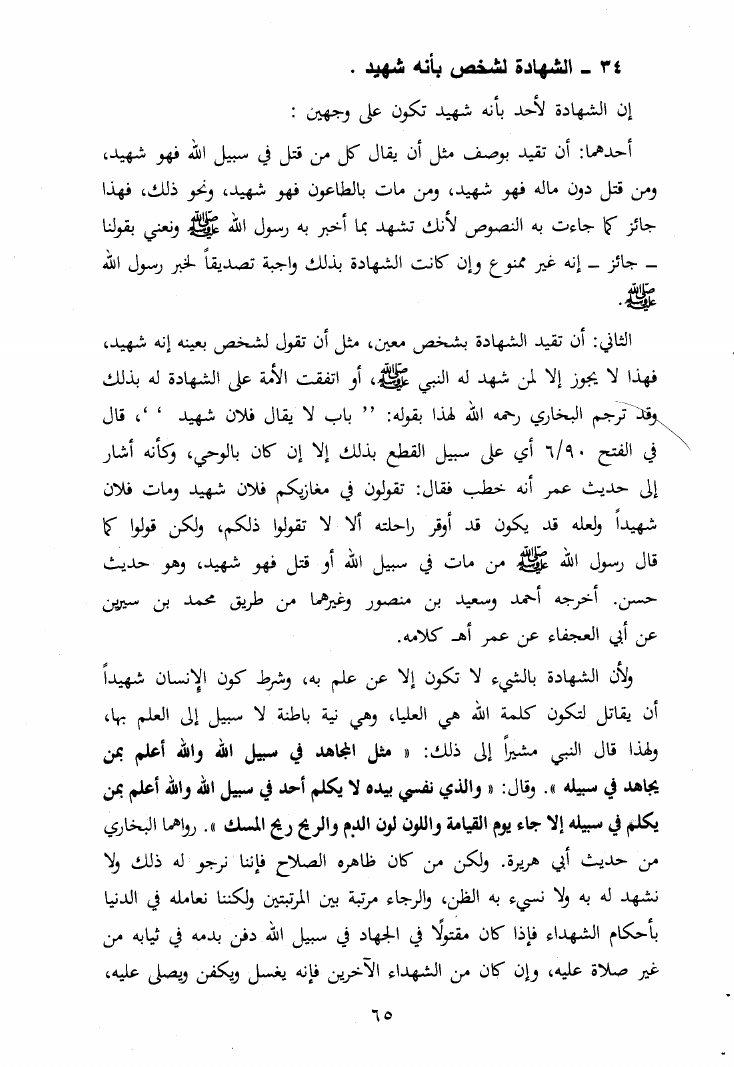 ٣٤ ـ الشهادة لشخص بأنه شهيد .
إن الشهادة لأحد بأنه شهيد تكون على وجهين :
أحدهما: أن تقيد بوصف مثل أن يقال كل من قتل في سبيل الله فهو شهيد،
ومن قتل دون ماله فهو شهيد، ومن مات بالطاعون فهو شهيد، ونحو ذلك، فهذا
جائز كما جاءت به النصوص لأنك تشهد بما أخبر به رسول الله ﷺ ونعني بقولنا
ـ جائز ـ إنه غير ممنوع وإن كانت الشهادة بذلك واجبة تصديقاً لخبر رسول الله
ﷺ.
الثاني: أن تقيد الشهادة بشخص معين، مثل أن تقول لشخص بعينه إنه شهيد،
فهذا لا يجوز إلا لمن شهد له النبي ﷺ، أو اتفقت الأمة على الشهادة له بذلك
وقد ترجم البخاري رحمه الله لهذا بقوله: ’’ باب لا يقال فلان شهيد ‘‘، قال
في الفتح ٦/٩٠ أي على سبيل القطع بذلك إلا إن كان بالوحي، وكأنه أشار
إلى حديث عمر أنه خطب فقال: تقولون في مغازيكم فلان شهيد ومات فلان
شهيداً ولعله قد يكون قد أوقر راحلته ألا لا تقولوا ذلكم، ولكن قولوا كما
قال رسول الله ﷺ من مات في سبيل الله أو قتل فهو شهيد، وهو حديث
حسن. أخرجه أحمد وسعيد بن منصور وغيرهما من طريق محمد بن سيرين
عن أبي العجفاء عن عمر أهـ كلامه.
ولأن الشهادة بالشيء لا تكون إلا عن علم به، وشرط كون الإنسان شهيداً
أن يقاتل لتكون كلمة الله هي العليا، وهي نية باطنة لا سبيل إلى العلم بها،
ولهذا قال النبي مشيراً إلى ذلك: « مثل المجاهد في سبيل الله والله أعلم بمن
يجاهد في سبيله ». وقال: « والذي نفسي بيده لا يكلم أحد في سبيل الله والله أعلم بمن
يكلم في سبيله إلا جاء يوم القيامة واللون لون الدم والريح ريح المسك ». رواهما البخاري
من حديث أبي هريرة. ولكن من كان ظاهره الصلاح فإننا نرجو له ذلك ولا
نشهد له به ولا نسيء به الظن، والرجاء مرتبة بين المرتبتين ولكننا نعامله في الدنيا
بأحكام الشهداء فإذا كان مقتولًا في الجهاد في سبيل الله دفن بدمه في ثيابه من
غير صلاة عليه، وإن كان من الشهداء الآخرين فإنه يغسل ويكفن ويصلى عليه،
٦٥